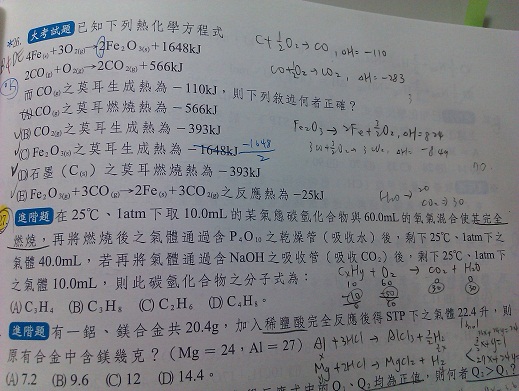 *26. 大考試題 已知下列熱化學方程式
4Fe(s)+3O2(g)→2Fe2O3(s)+1648kJ
2CO(g)+O2(g)→2CO2(g)+566kJ
而CO(g)之莫耳生成熱為-110kJ,則下列敘述何者正確?
(A)CO(g)之莫耳燃燒熱為-566kJ
(B)CO2(g)之莫耳生成熱為-393kJ
(C)Fe2O3(s)之莫耳生成熱為-1648kJ -1648/2
(D)石墨(C(s))之莫耳燃燒熱為-393kJ
(E)Fe2O3(s)+3CO(g)→2Fe(s)+3CO2(g)之反應熱為-25kJ
C+1/2O2→CO, ΔH=-110
CO+1/2O2→CO2, ΔH=-283
Fe2O3→2Fe+3/2O2, ΔH=824
27. 進階題 在25℃、1atm下取10.0mL的某氣態碳氫化合物與60.0mL的氧氣混合使其完全
燃燒,再將燃燒後之氣體通過含P4O10之乾燥管(吸收水)後,剩下25℃、1atm下之
氣體40.0mL,若再將氣體通過含NaOH之吸收管(吸收CO2)後,剩下25℃、1atm下
之氣體10.0mL,則此碳氫化合物之分子式為:
CxHy + O2 → CO2 + H2O
(A)C3H4 (B)C3H8 (C)C2H6 (D)C4H8。
進階題 有一鋁、鎂合金共20.4g,加入稀鹽酸完全反應後得STP下之氣體22.4升,則
原有合金中含鎂幾克?(Mg=24,Al=27)
Al+3HCl→AlCl3+3/2H2
Mg+2HCl→MgCl2+H2
(A)7.2 (B)9.6 (C)12 (D)14.4。
Q1、Q2均為正值,則何者Q2>Q1?